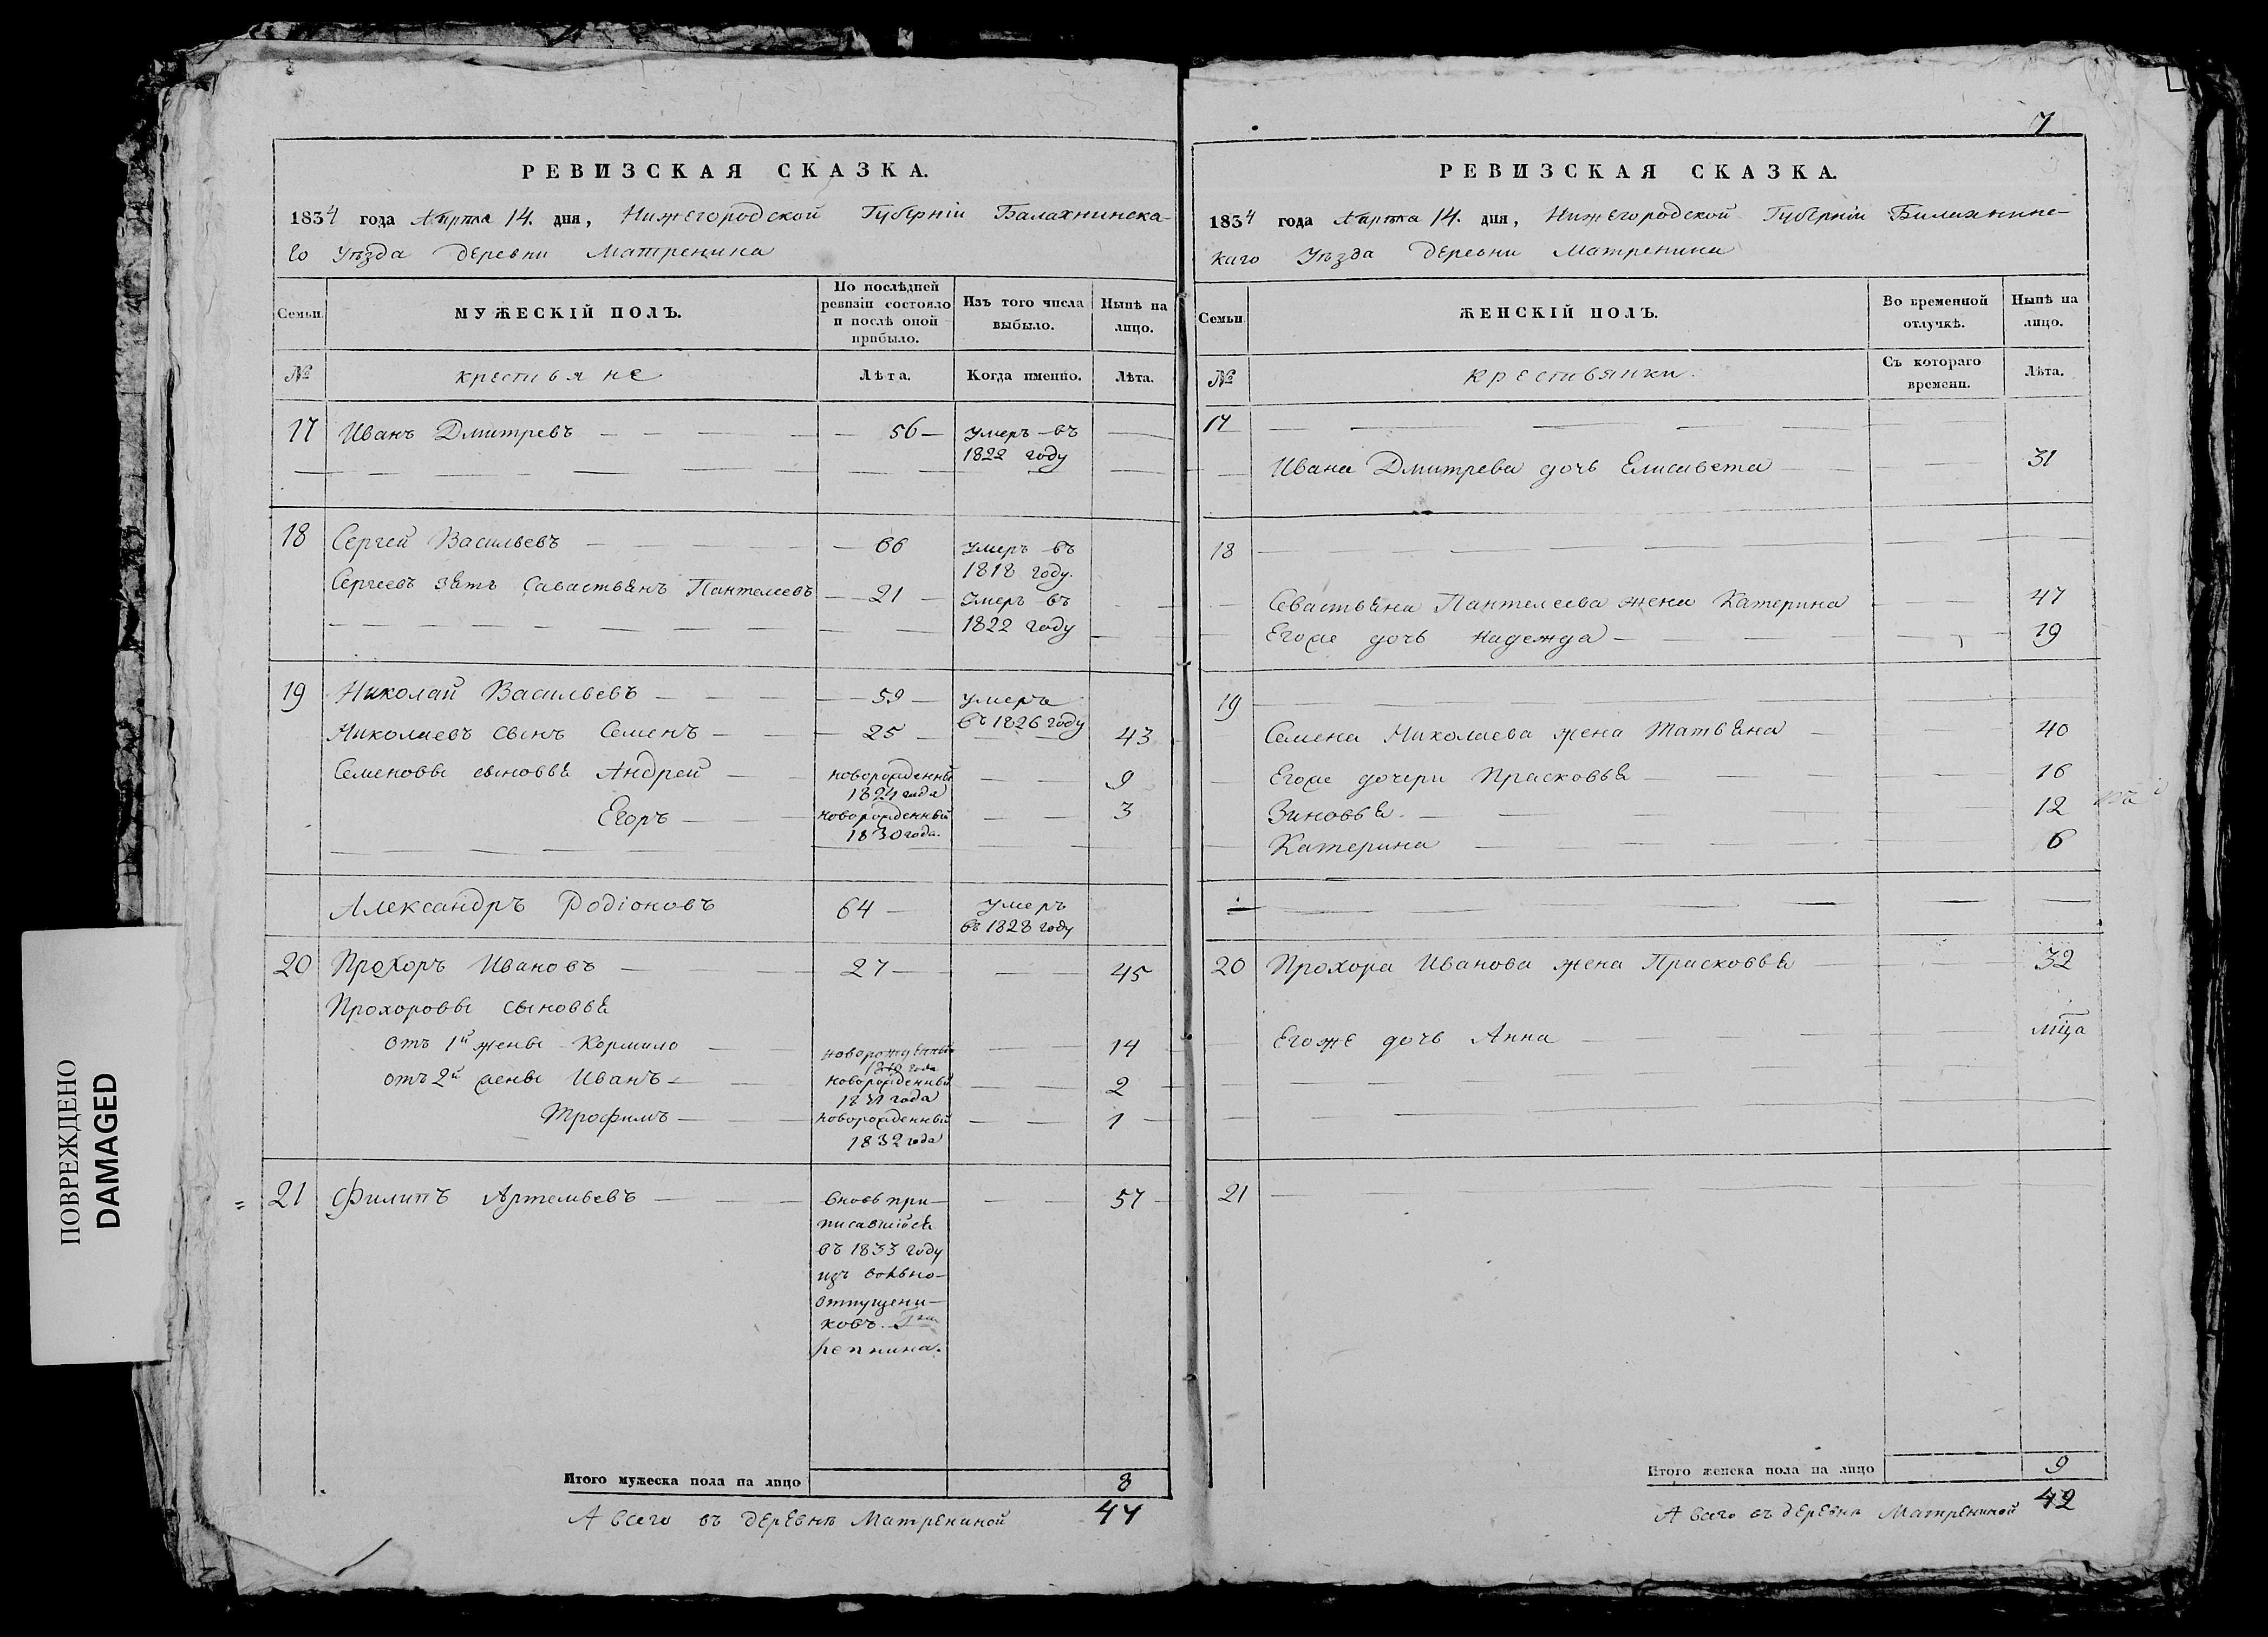 РЕВИЗСКАЯ СКАЗКА.
1834 года Апреля 14. дня, Нижегородской Губернiи Балахнинска-
го Уѣзда деревни Матренина
Семьи
МУЖЕСКІЙ ПОЛЪ.
По послѣдней ревизіи состояло и послѣ оной прибыло.
Изъ того числа выбыло.
Нынѣ на лицо.
№ крестьяне Лѣта. Когда именно. Лѣта.
17 Иванъ Дмитревъ 56 умеръ въ
1822 году
18 Сергей Васильевъ 66 умеръ въ
1818 году.
Сергеевъ зять Савастьянъ Пантелеевъ 21 Умеръ въ
1822 году
19 Николай Васильевъ 59 умеръ
въ 1826 году
Николаевъ сынъ Семенъ 25 43
Семеновы сыновья Андрей новорожденный 9
1824 года
Егоръ новорожденный 3
1830 года.
Александръ Родiоновъ 64 умеръ
въ 1828 году
20 Прохоръ Ивановъ 27 45
Прохоровы сыновья
отъ 1й жены Кормило новорожденный 14
года
отъ 2й жены Иванъ новорожденный 2
1831 года
Трофимъ новорожденный 1
1832 года
21 Филипъ Артемьевъ вновь при- 57
писавшiйся
въ 1833 году
изъ вольно-
отпущени-
ковъ.
репнина.
Итого мужеска пола на лицо 8
А всего въ деревнѣ Матрениной 47
7
РЕВИЗСКАЯ СКАЗКА.
1834 года Апреля 14. дня, Нижегородской Губернiи Балахнинс-
каго Уѣзда деревни Матренина
Семьи
ЖЕНСКІЙ ПОЛЪ.
Во временной отлучкѣ.
Нынѣ на лицо.
№ крестьянки. Съ котораго времени. Лѣта.
17
Ивана Дмитрева дочь Елисавета 31
18
Севастьяна Пантелеева жена Катерина 47
Егоже дочь Надежда 19
19
Семена Николаева жена Татьяна 40
Егоже дочери Прасковья 16
Зиновья 12
Катерина 6
20 Прохора Иванова жена Прасковья 32
Егоже дочь Анна мца
21
Итого женска пола на лицо 9
А всего въ деревнѣ Матрениной 42
ПОВРЕЖДЕНО
DAMAGED